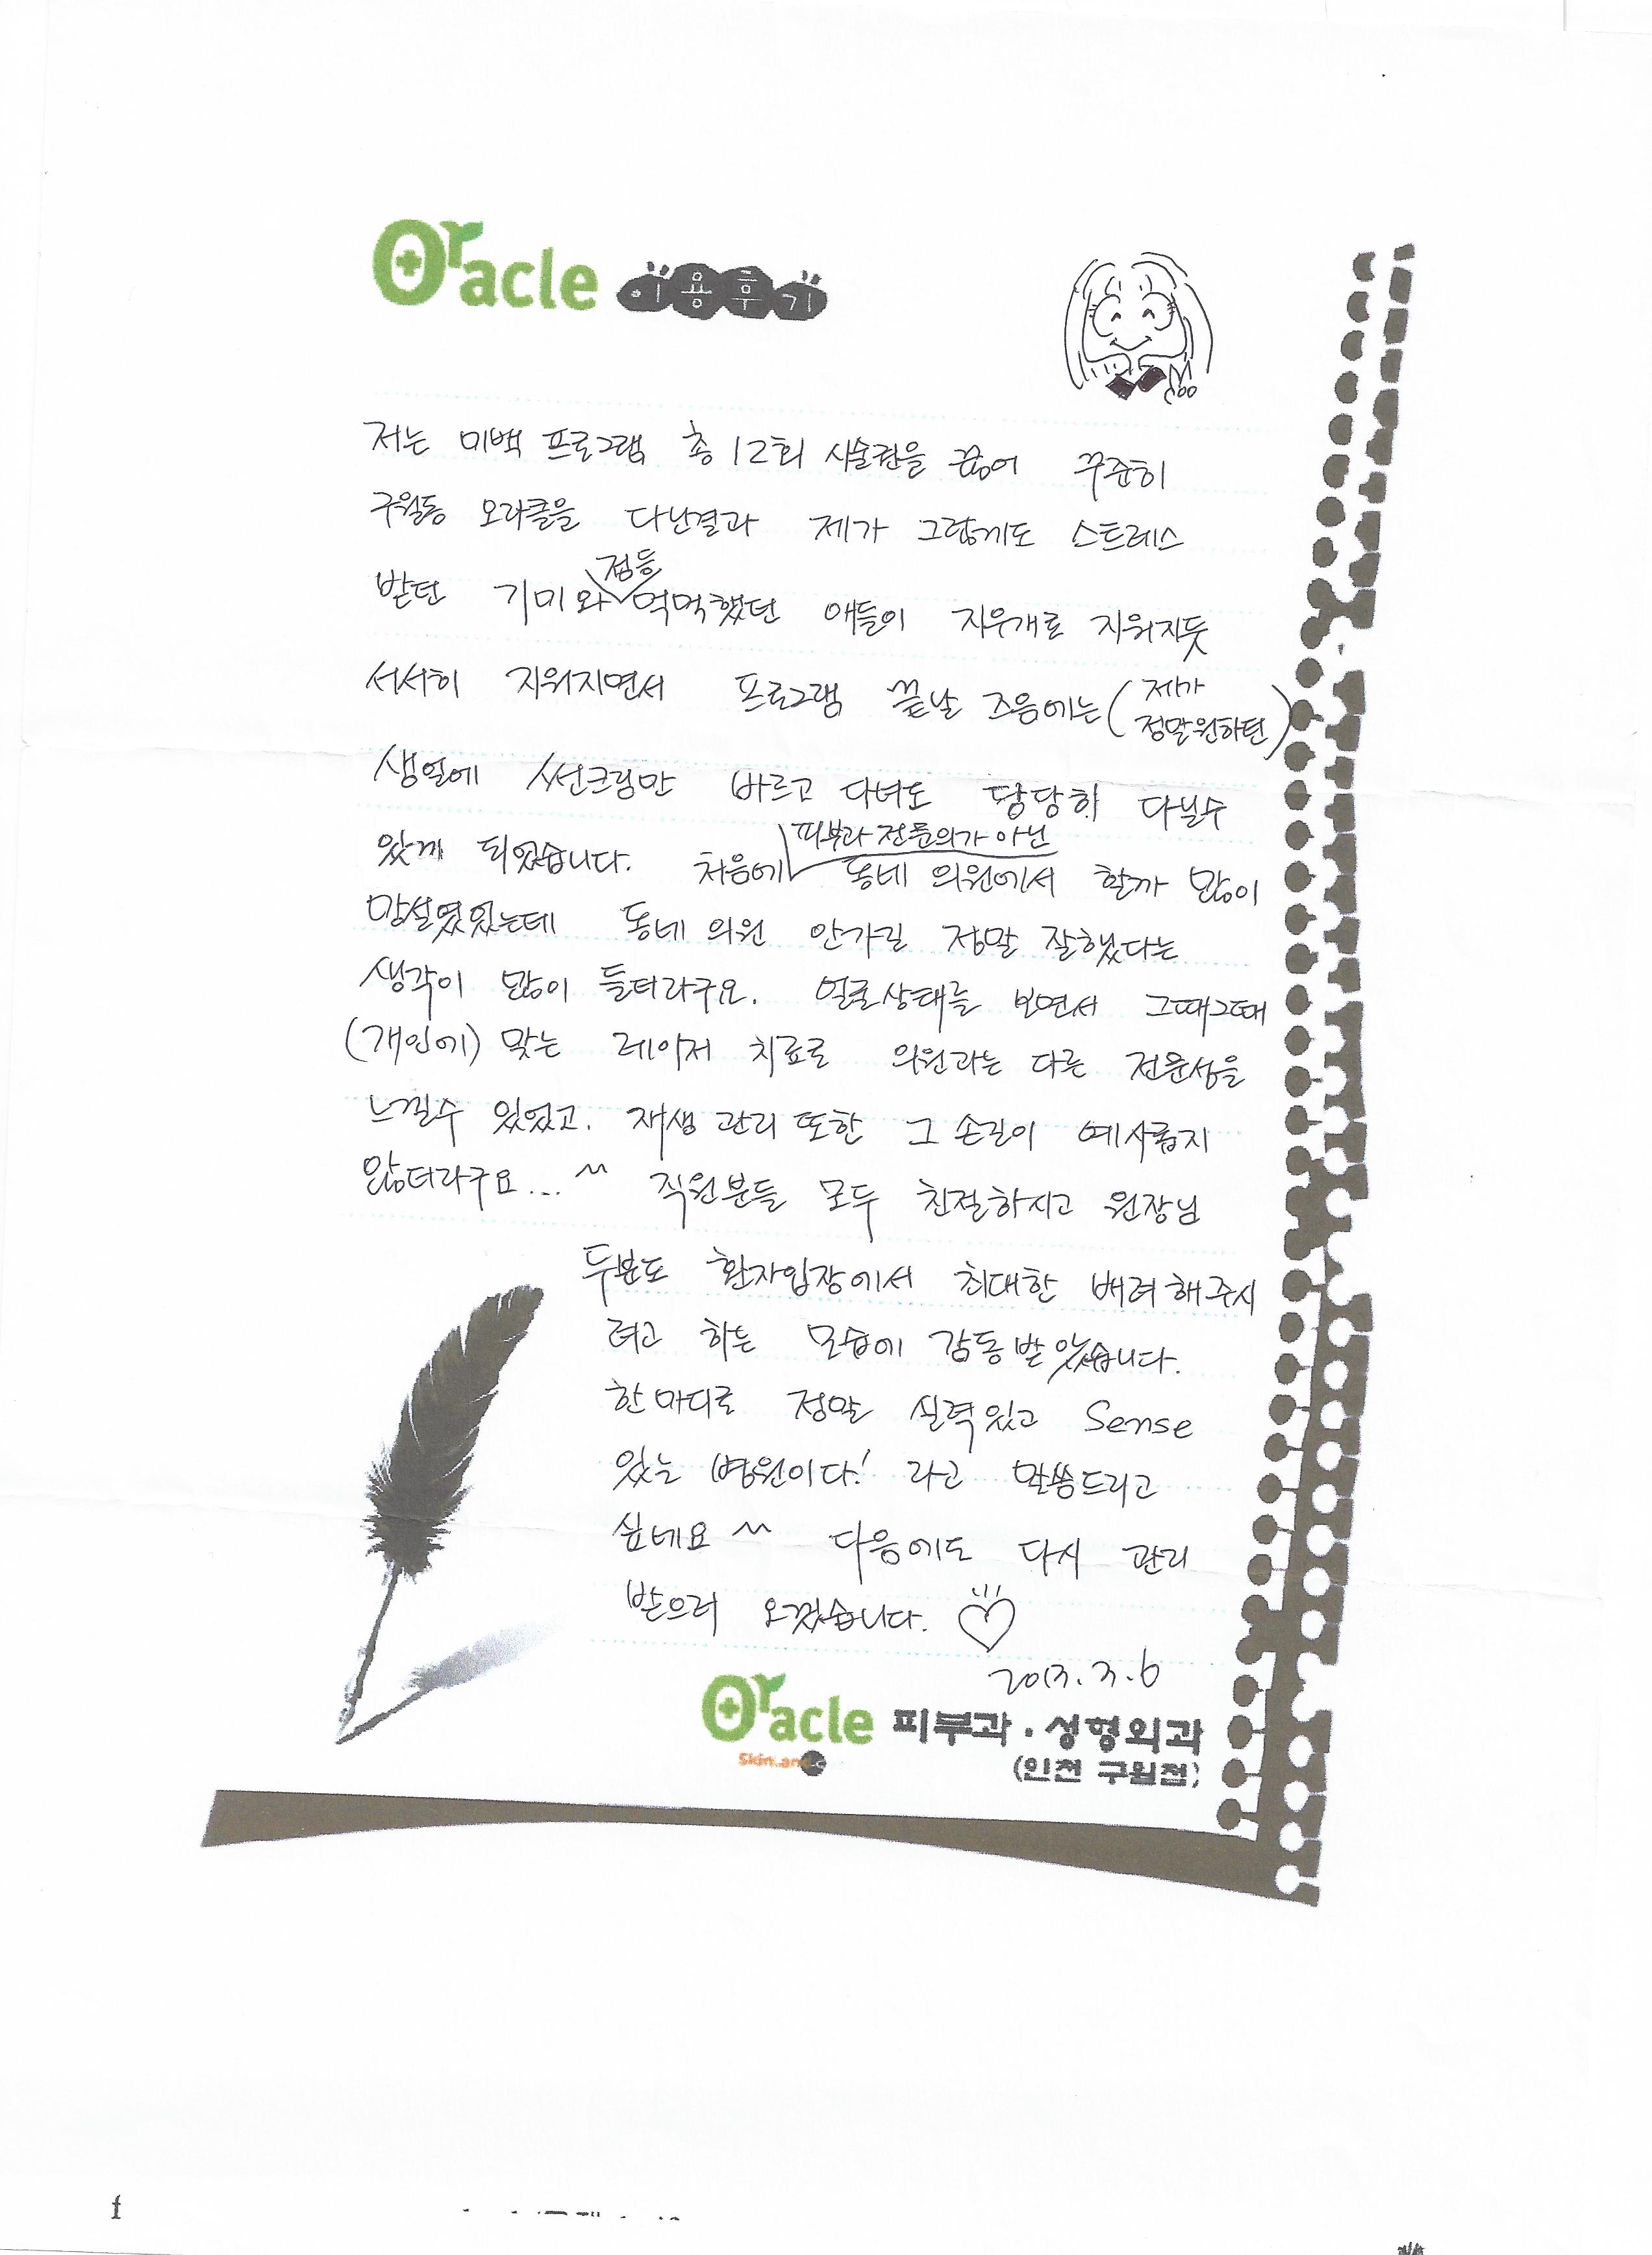 Oracle 이용후기
저는 미백 프로그램 총 12회 시술권을 끊어 꾸준히
구월동 오라클을 다닌결과 제가 그렇게도 스트레스
받던 기미와 점등 먹먹했던 애들이 지우개로 지워지듯
서서히 지워지면서 프로그램 끝날 즈음에는 (제가 정말원하던)
생얼에 썬크림만 바르고 다녀도 당당히 다닐수
있게 되었습니다. 처음에 피부과 전문의가 아닌 동네 의원에서 할까 많이
망설였었는데 동네 의원 안가길 정말 잘했다는
생각이 많이 들더라구요. 얼굴상태를 보면서 그때그때
(개인에) 맞는 레이저 치료로 의원과는 다른 전문성을
느낄수 있었고. 재생 관리 또한 그 손길이 예사롭지
않더라구요... ^^ 직원분들 모두 친절하시고 원장님
두분도 환자입장에서 최대한 배려해주시
려고 하는 모습에 감동받았습니다.
한마디로 정말 실력있고 Sense
있는 병원이다! 라고 말씀드리고
싶네요 ^^ 다음에도 다시 관리
받으러 오겠습니다. ♡
2013.3.6
Oracle 피부과·성형외과
Skin and
(인천 구월점)
f